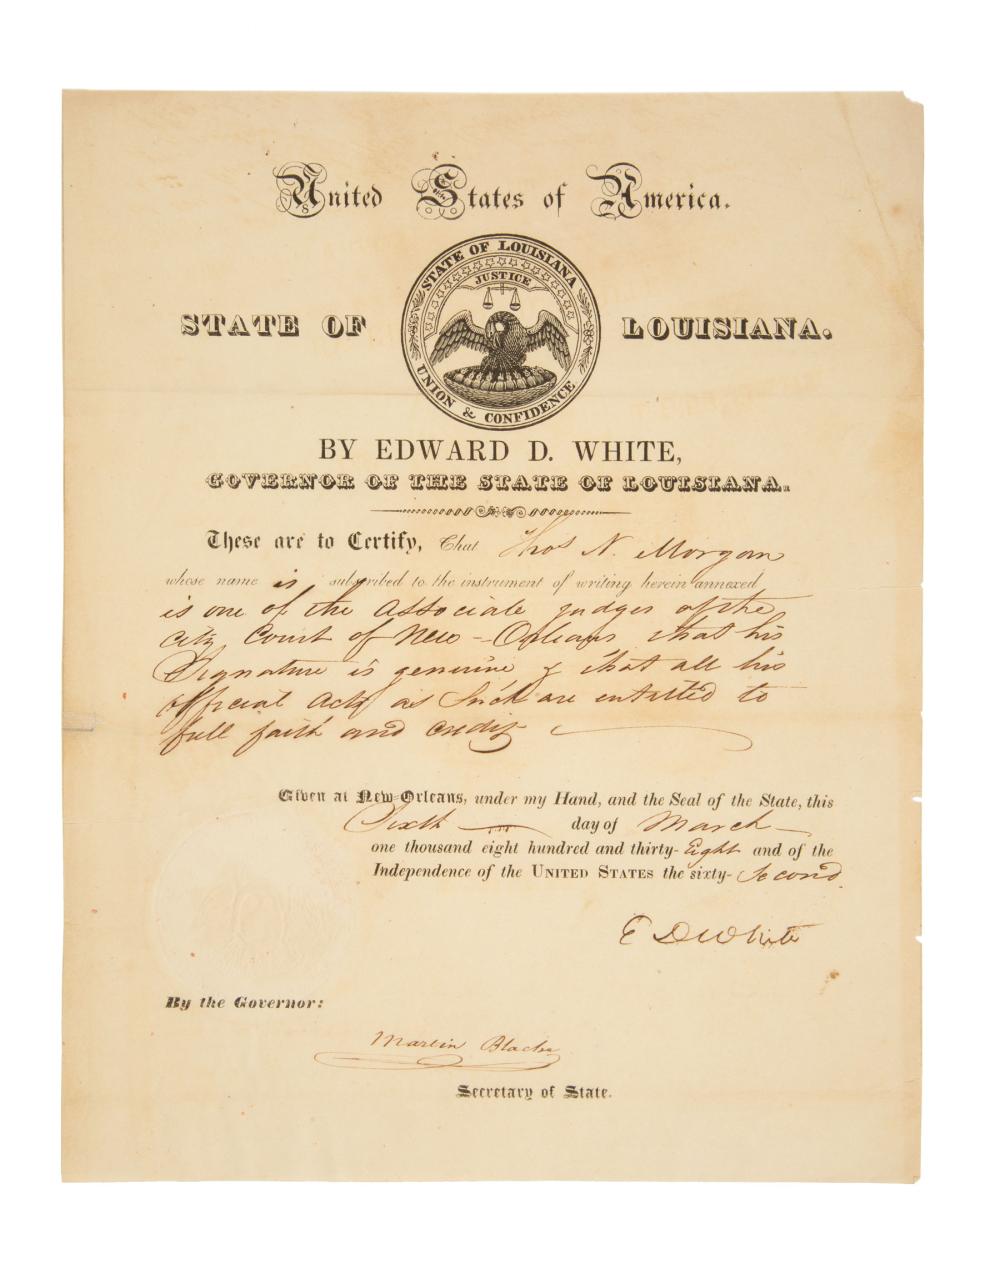 United States of America.
STATE OF LOUISIANA
JUSTICE
UNION & CONFIDENCE
STATE OF LOUISIANA.
BY EDWARD D. WHITE,
GOVERNOR OF THE STATE OF LOUISIANA.
These are to Certify, That Thos N. Morgan
whose name is subscribed to the instrument of writing herein annexed
is one of the associate judges of the
City Court of New-Orleans that his
Signature is genuine & that all his
official acts as such are entitled to
full faith and credit
Given at New-Orleans, under my Hand, and the Seal of the State, this
Sixth day of March
one thousand eight hundred and thirty-Eight and of the
Independence of the UNITED STATES the sixty-Second.
E D White
By the Governor:
Martin Blache
Secretary of State.